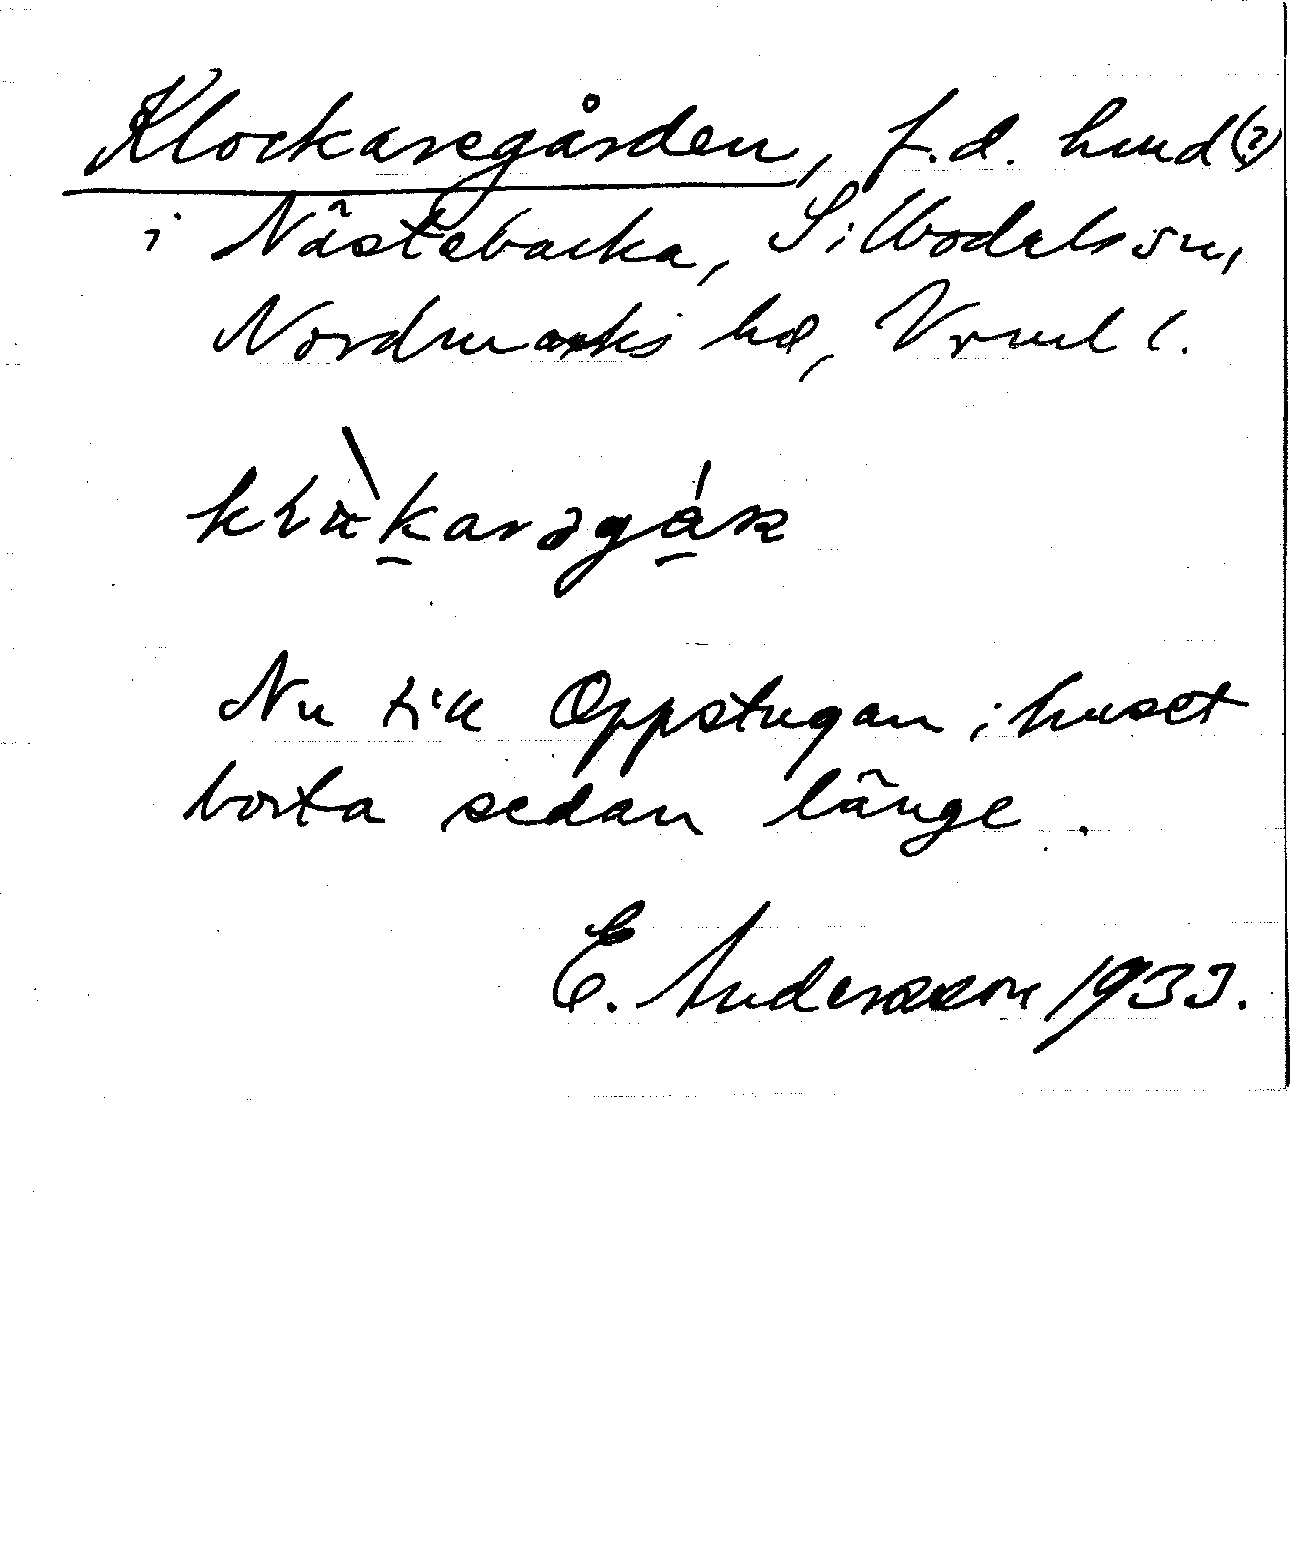 Klockaregården, f.d. hmd (?)
i Nästebacka, Sillbodals sn,
Nordmarks hd, Vrml l.
Nu till Oppstugan; huset
borta sedan länge.
E. Andersson 1933.